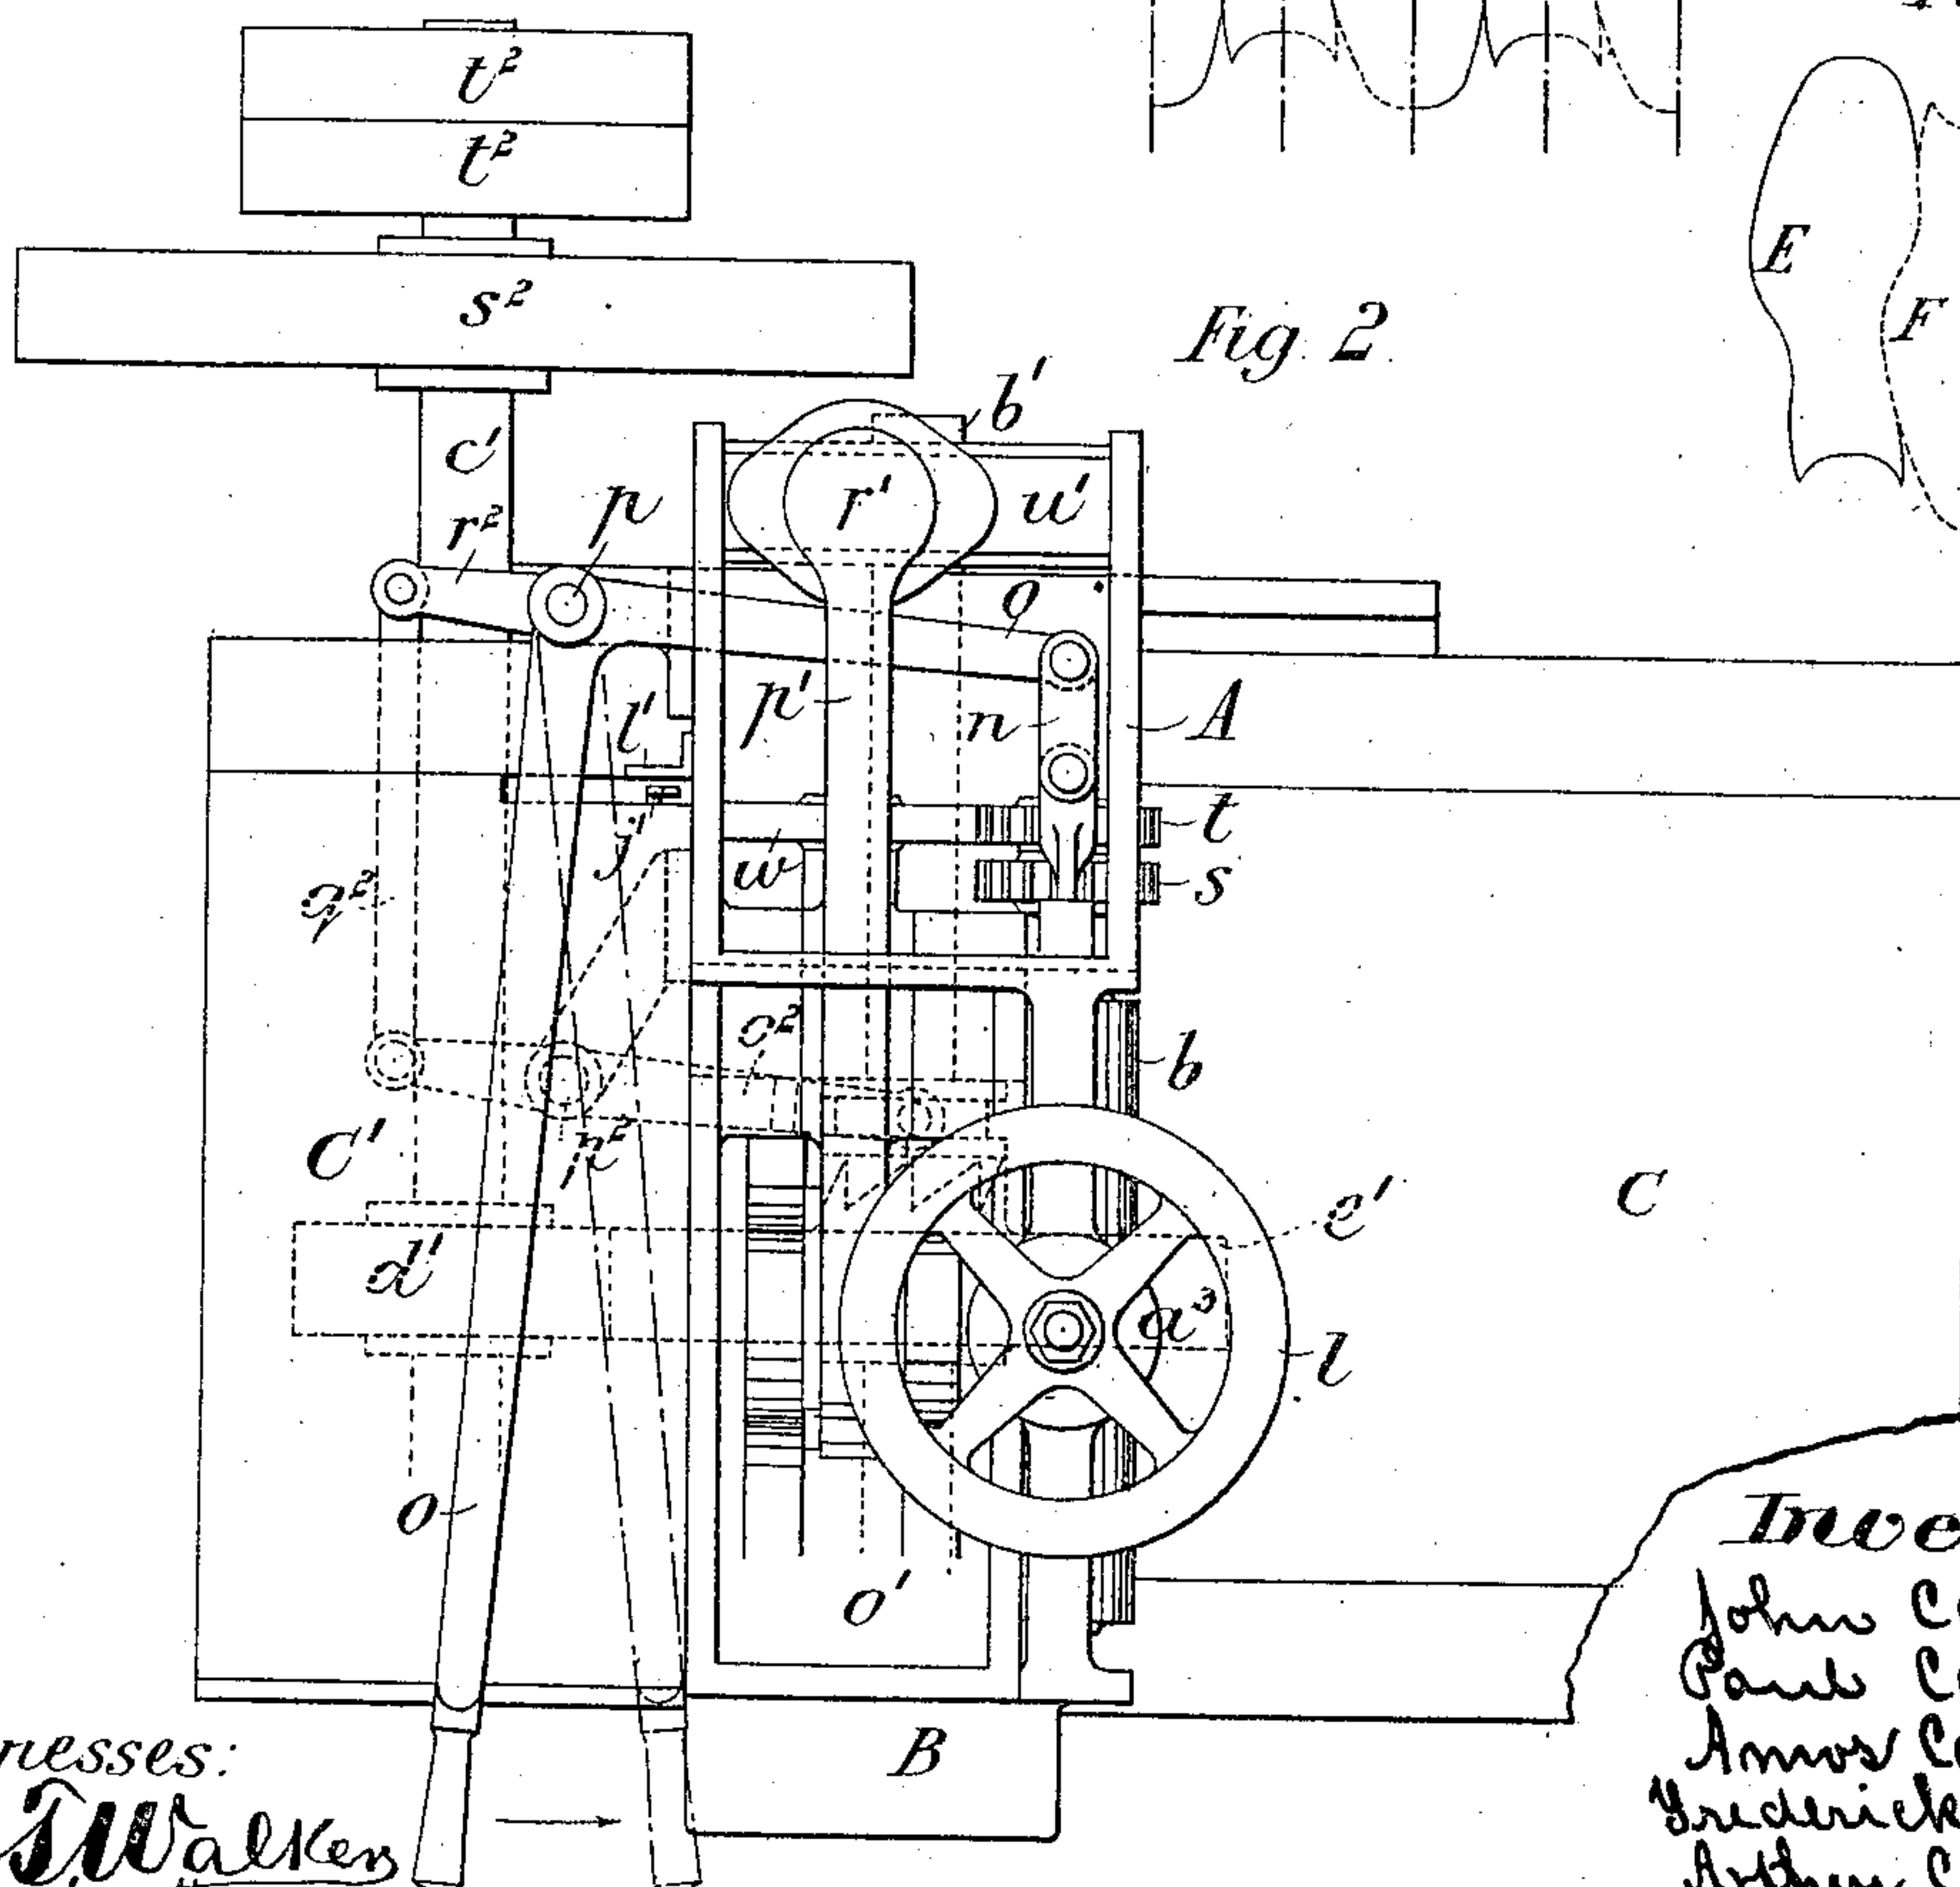 t²
t²
s²
E
F
Fig. 2.
b'
c'
r²
p
r'
u'
o
l'
p'
n
A
t
j
w
s
q²
o²
b
C'
p²
e'
C
d'
a³
l
o
o'
B
nesses:
T. Walker
Inve
John C
Paul C
Amos C
Frederick
Arthur C